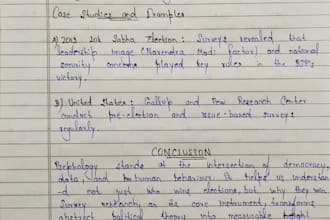 Case Studies and Examples
A) 2019 Lok Sabha Election: Surveys revealed that
leadership image (Narendra Modi factor) and national
security concerns played key roles in the BJP's
victory.
B) United States: Gallup and Pew Research Center
conduct pre-election and issue-based surveys
regularly.
CONCLUSION
Psephology stands at the intersection of democracy,
data, and human behaviour. It helps us understan
-d not just who wins elections, but why they win
Survey research, as its core instrument, transforms
abstract political theory into measurable insight.